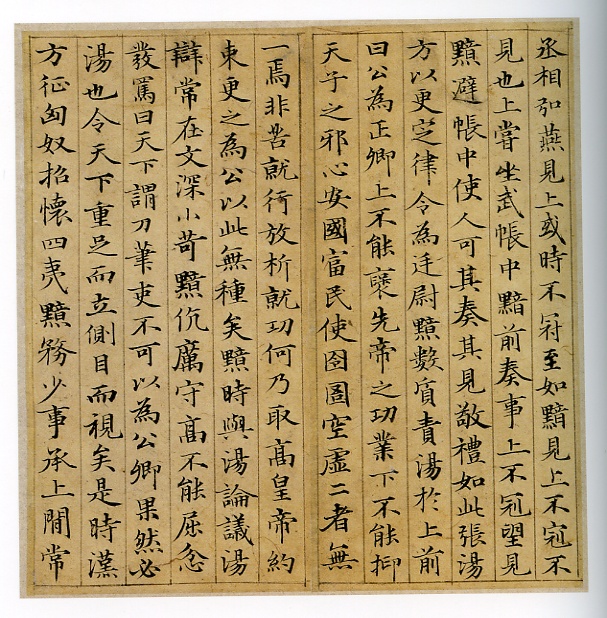 丞相弘燕見上或時不冠至如黯見上不冠不
見也上嘗坐武帳中黯前奏事上不冠望見
黯避帳中使人可其奏其見敬禮如此張湯
方以更定律令為廷尉黯數質責湯於上前
曰公為正卿上不能褒先帝之功業下不能抑
天子之邪心安國富民使囹圄空虛二者無
一焉非苦就行放析就功何乃取高皇帝約
束更之為公以此無種矣黯時與湯論議湯
辯常在文深小苛黯伉厲守高不能屈忿
發罵曰天下謂刀筆吏不可以為公卿果然必
湯也令天下重足而立側目而視矣是時漢
方征匈奴招懷四夷黯務少事承上間常